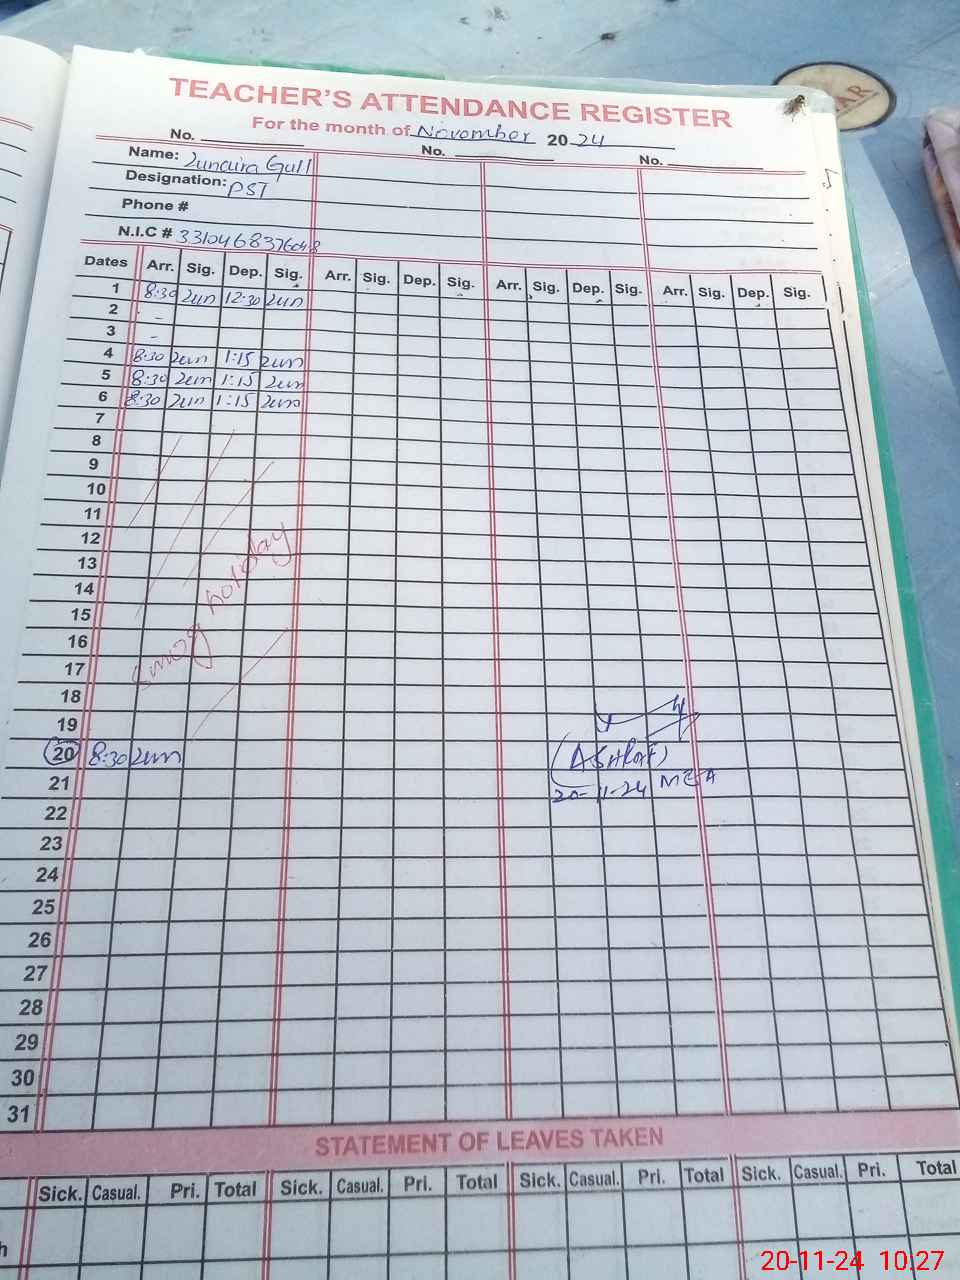 TEACHER'S ATTENDANCE REGISTER
For the month of November 2024
No. No. No.
Name: Zunaira Gull
Designation: PST
Phone #
N.I.C # 3310468376048
Dates Arr. Sig. Dep. Sig. Arr. Sig. Dep. Sig. Arr. Sig. Dep. Sig. Arr. Sig. Dep. Sig.
1 8:30 Zun 12:30 Zun
2 -
3 -
4 8:30 Zun 1:15 Zun
5 8:30 Zun 1:15 Zun
6 8:30 Zun 1:15 Zun
7
8
9
10
11
12
13
14
15
16
17
Smog holiday
18
19
20 8:30 Zun (ASHRAF)
21 20-11-24 MEA
22
23
24
25
26
27
28
29
30
31
STATEMENT OF LEAVES TAKEN
Sick. Casual. Pri. Total Sick. Casual. Pri. Total Sick. Casual. Pri. Total Sick. Casual. Pri. Total
20-11-24 10:27